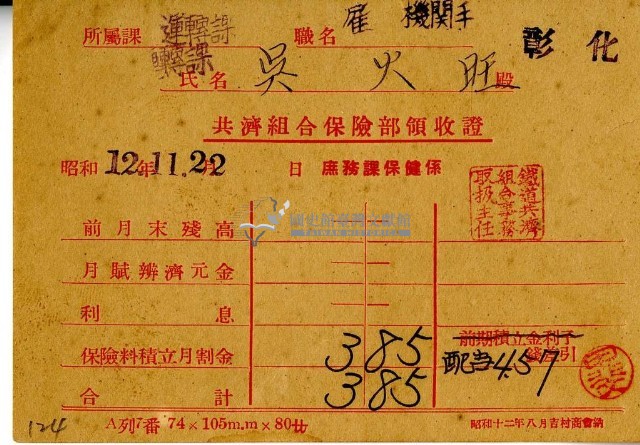 所屬課 運轉課 職名 雇 機關手
運轉課 彰化
氏名 吳火旺 殿
共濟組合保險部領收證
昭和12年11.22日 庶務課保健係
鐵道共濟
組合事務
取扱主任
國史館臺灣文獻館
前月末殘高
月賦辨濟元金 — —
利息 — —
保險料積立月割金 385
前期積立金利子
配当4.57
合計 385
124
A列7番 74×105m.m×80廿
昭和十二年八月吉村商會納